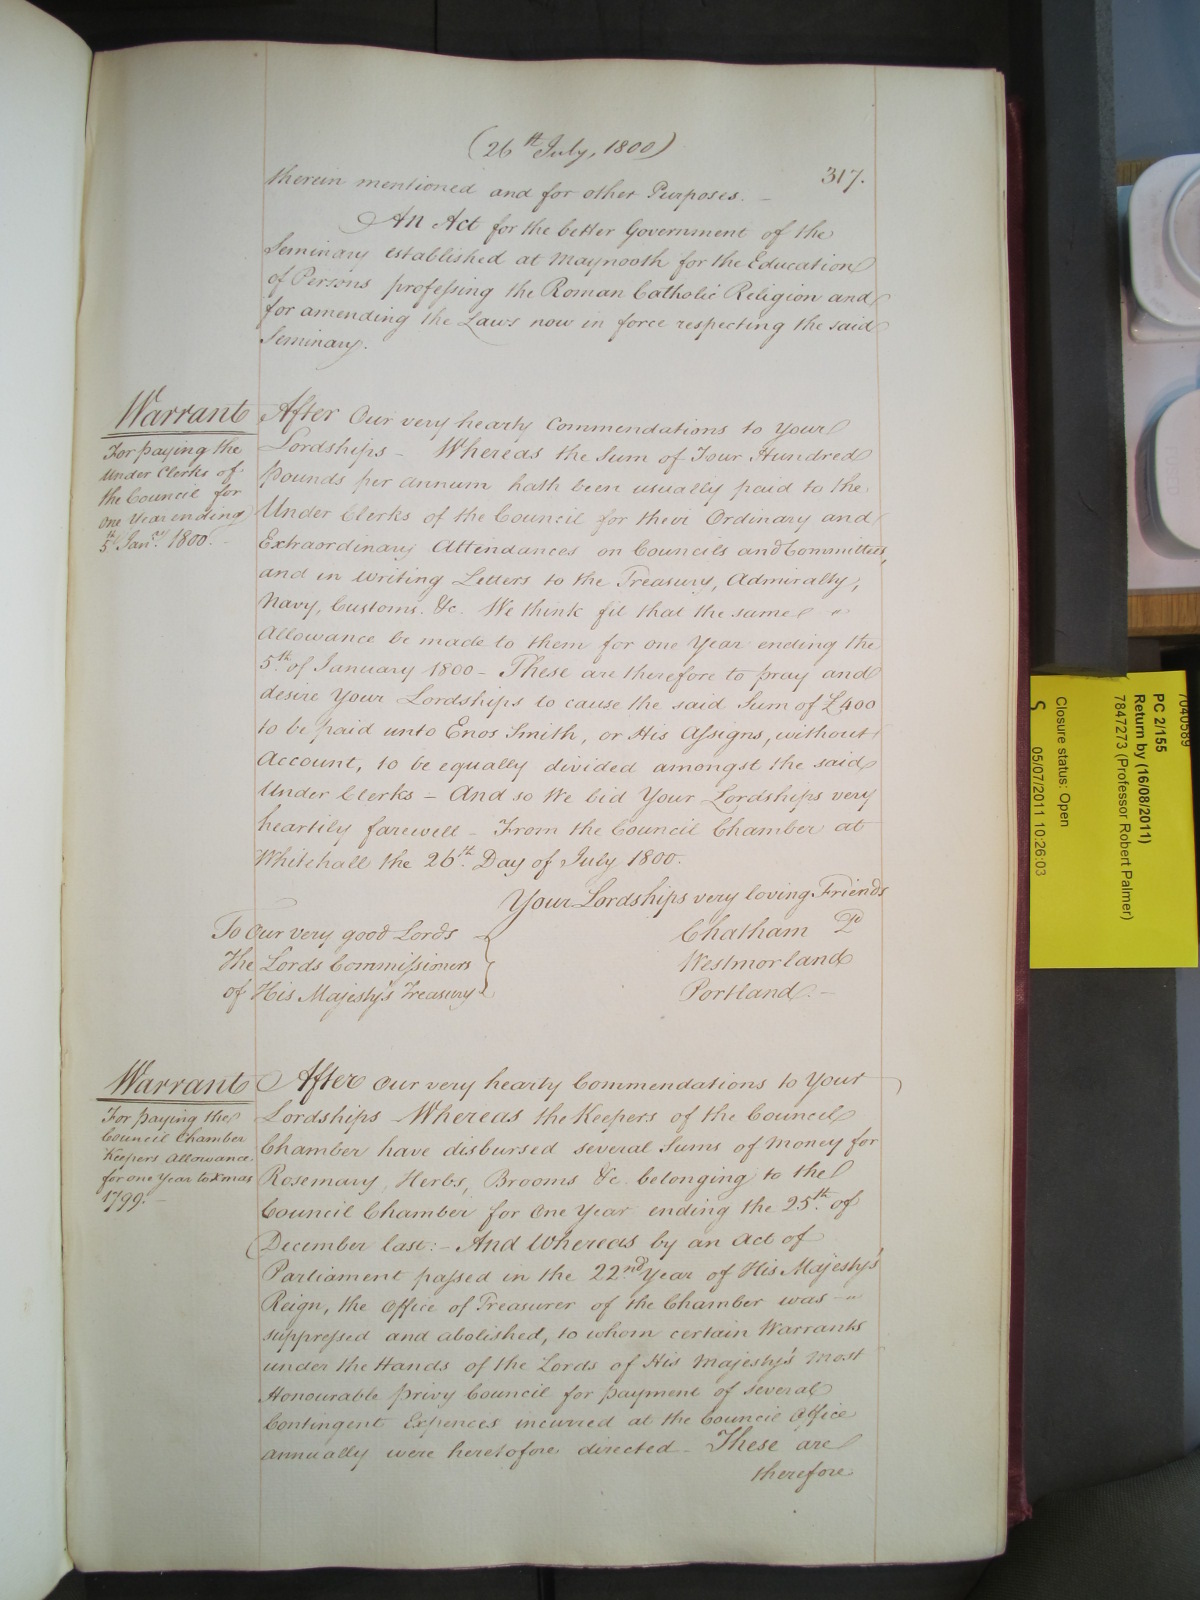 (26th July, 1800)
317.
therein mentioned and for other Purposes. –
An Act for the better Government of the
Seminary established at Maynooth for the Education
of Persons profeſsing the Roman Catholic Religion and
for amending the Laws now in force respecting the said
Seminary.
Warrant
For paying the
Under Clerks of
the Council for
one Year ending
5th Janry. 1800. –
After Our very hearty Commendations to Your
Lordships – Whereas the Sum of Four Hundred
Pounds per Annum hath been usually paid to the
Under Clerks of the Council for their Ordinary and
Extraordinary Attendances on Councils and Committees,
and in writing Letters to the Treasury, Admiralty,
Navy, Customs. &c. We think fit that the same "
Allowance be made to them for one Year ending the
5th. of January 1800 – These are therefore to pray and
desire Your Lordships to cause the said Sum of £400
to be paid unto Enos Smith, or His Aſsigns, without
Account, to be equally divided amongst the said
Under Clerks – And so We bid Your Lordships very
heartily farewell – From the Council Chamber at
Whitehall the 26th. Day of July 1800.
Your Lordships very loving Friends
To Our very good Lords
The Lords Commiſsioners
of His Majesty's Treasury
Chatham P.
Westmorland
Portland. –
Warrant
For paying the
Council Chamber
Keepers Allowance
for one Year to Xmas
1799. –
After Our very hearty Commendations to Your
Lordships Whereas the Keepers of the Council
Chamber have disbursed several Sums of Money for
Rosemary, Herbs, Brooms &c. belonging to the
Council Chamber for One Year ending the 25th. of
December last: – And Whereas by an Act of
Parliament paſsed in the 22nd Year of His Majesty's
Reign, the Office of Treasurer of the Chamber was – "
suppreſsed and abolished, to whom certain Warrants
under the Hands of the Lords of His Majesty's Most
Honourable Privy Council for payment of several
Contingent Expences incurred at the Council Office
annually were heretofore directed – These are
therefore
7040589
PC 2/155
Return by (16/08/2011)
7847273 (Professor Robert Palmer)
Closure status: Open
S 05/07/2011 10:26:03